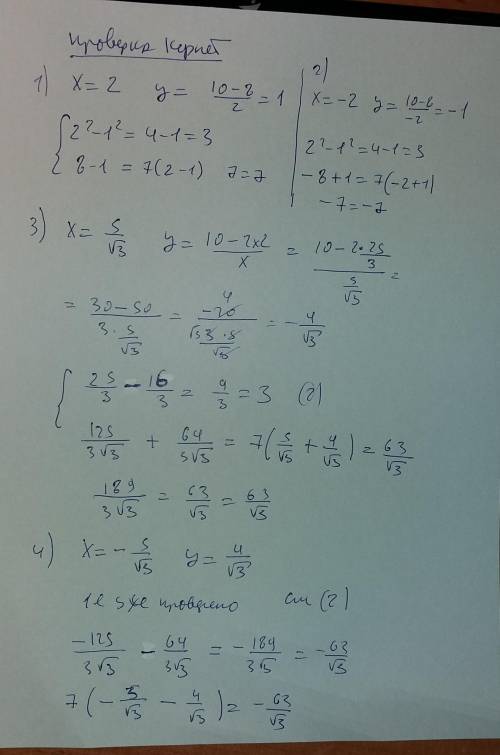 Проверка корней
1) x = 2 y = (10-8)/2 = 1
{ 2²-1² = 4-1 = 3
8-1 = 7(2-1) 7=7
2)
x = -2 y = (10-8)/-2 = -1
2²-1² = 4-1 = 3
-8+1 = 7(-2+1)
-7 = -7
3) x = 5/√3 y = (10-2x2)/x = (10-2·25/3)/(5/√3) =
= (30-50)/(3·5/√3) = -20/(√3 3·5/√3) 4 = -4/√3
{ 25/3 - 16/3 = 9/3 = 3 (2)
125/3√3 + 64/3√3 = 7(5/√3 + 4/√3) = 63/√3
189/3√3 = 63/√3 = 63/√3
4) x = -5/√3 y = 4/√3
1е уже проверено см (2)
-125/3√3 - 64/3√3 = -189/3√3 = -63/√3
7(-5/√3 - 4/√3) = -63/√3